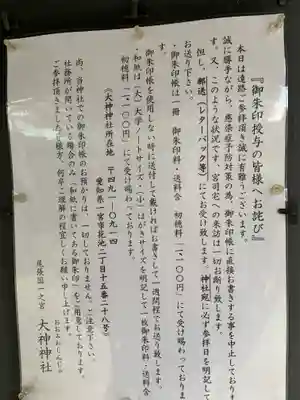 『御朱印授与の皆様へお詫び』
本日は遠路ご参拝頂き誠に有難うございます。
誠に勝手ながら、感染症予防対策の為、御朱印帳に直接お書きする事を中止しております。又、このような状況です、宮司宅への来訪は一切お断り致します。
但し、郵送（レターパック等）にてお受け致します。神社宛に必ず参拝日を明記して
お送り下さい。
・御朱印帳は一冊　御朱印料・送料含　初穂料　二、一〇〇円にて受け賜わっております
御朱印帳を使用しない時に送付して戴ければお書きして一週間程でお送り致します。
・和紙は（大）大学ノートサイズ（小）はがきサイズを明記して一枚御朱印料・送料含
初穂料　一、一〇〇円にて受け賜わっております。
《大神神社所在地　〒四九一ー〇九一四
愛知県一宮市花池二丁目十五番二十八号》
尚、当神社での御朱印帳のお預かりは、一切しておりません。ご注意下さい。
社務所が開いている場合のみ「和紙に書いてある御朱印」をご用意しております。
ご参拝頂きましたご皆方、何卒ご理解の程宜しくお願い申し上げます。
尾張国一之宮　大神神社
おおみわじんじゃ